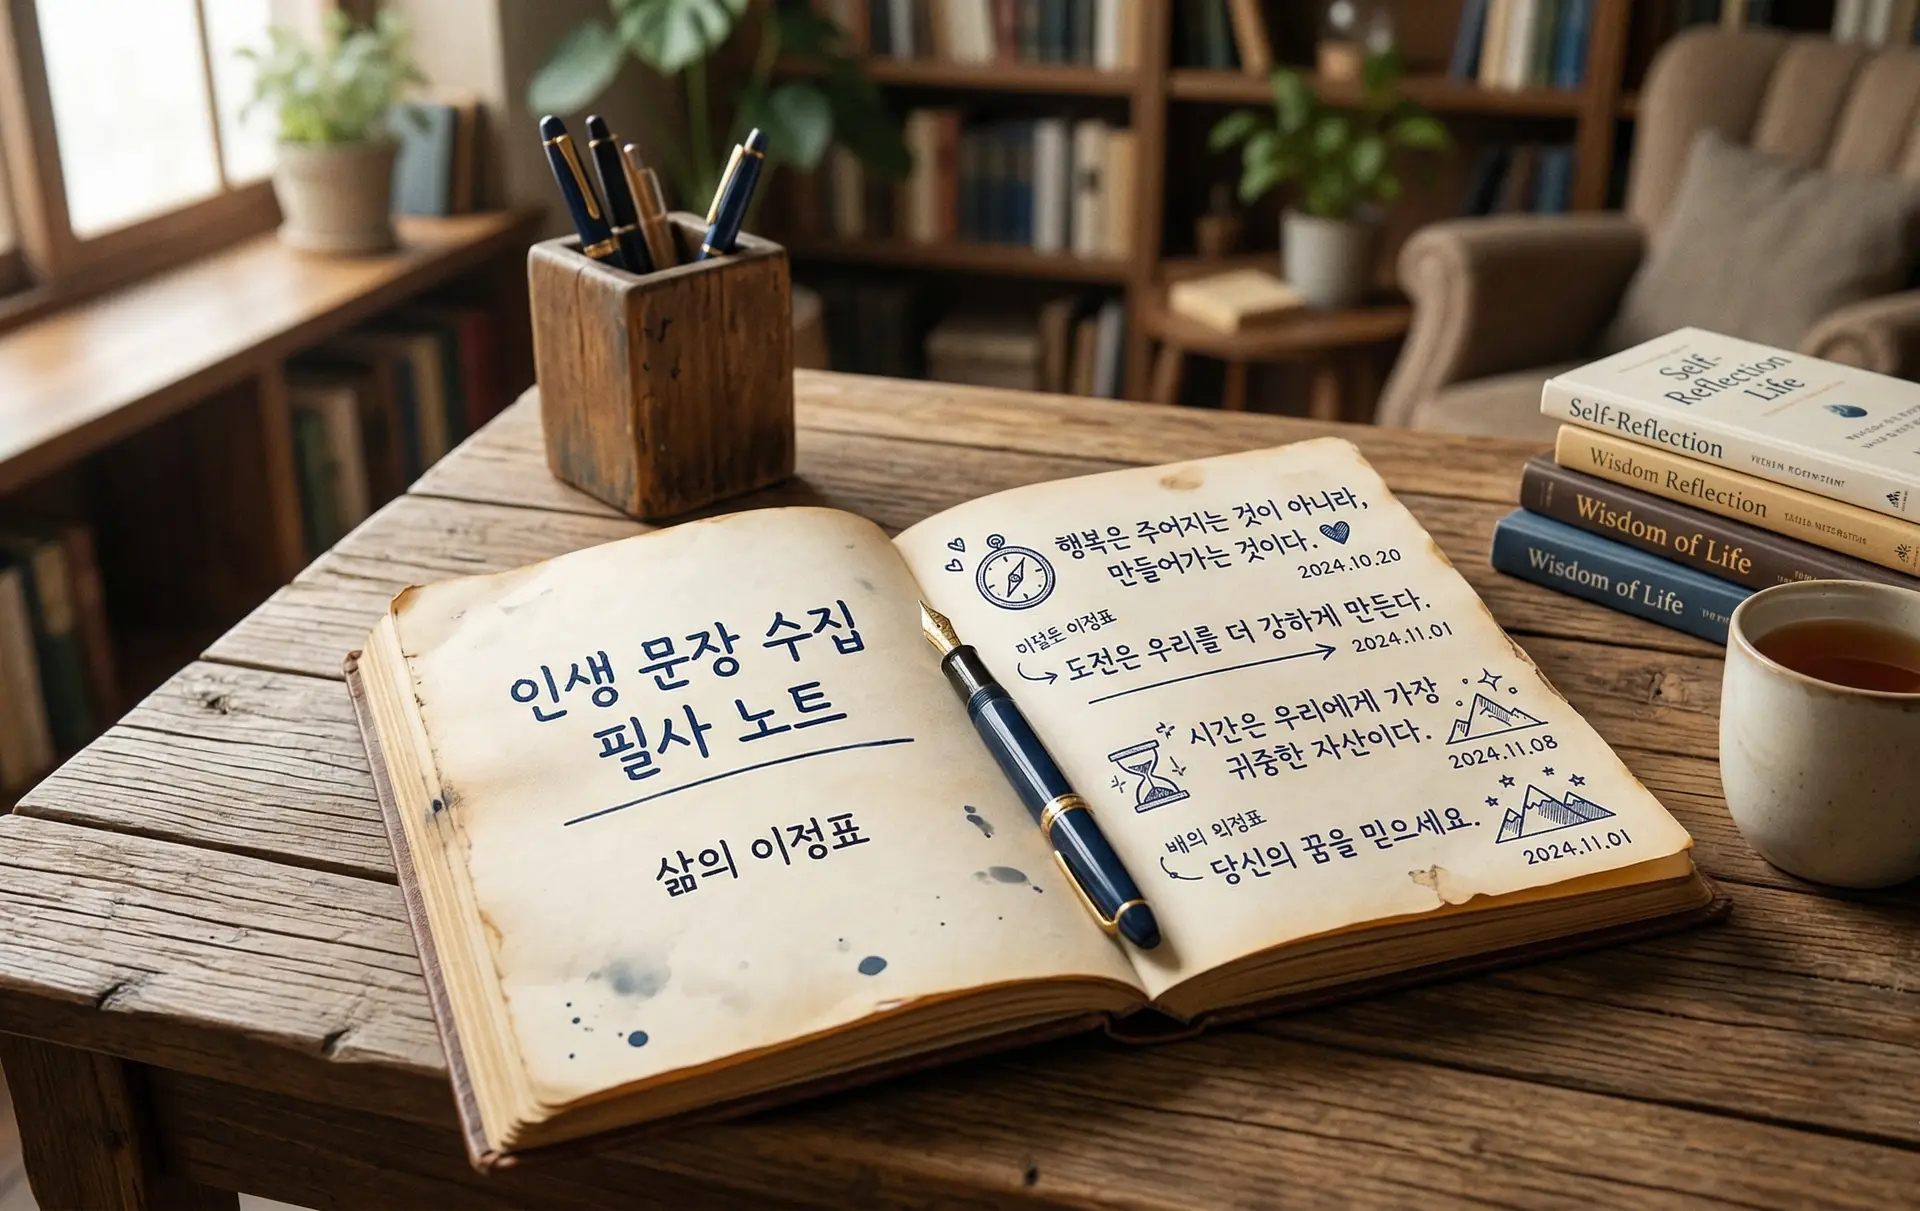 인생 문장 수집
필사 노트
삶의 이정표
행복은 주어지는 것이 아니라,
만들어가는 것이다.
2024.10.20
이정표
도전은 우리를 더 강하게 만든다.
2024.11.01
시간은 우리에게 가장
귀중한 자산이다.
2024.11.08
배의 외정표
당신의 꿈을 믿으세요.
2024.11.01
Self-
Reflection
Life
Self-Reflection
Wisdom Reflection
Wisdom of Life
Wisdom of Life